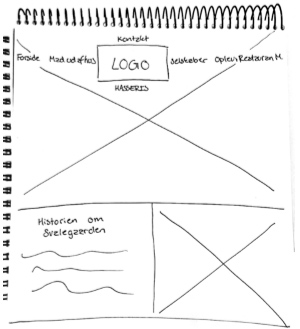 Kontakt
Forside Mad ud af hus LOGO Selskaber Oplev Restauran M.
HASSERIS
Historien om
Svalegaarden